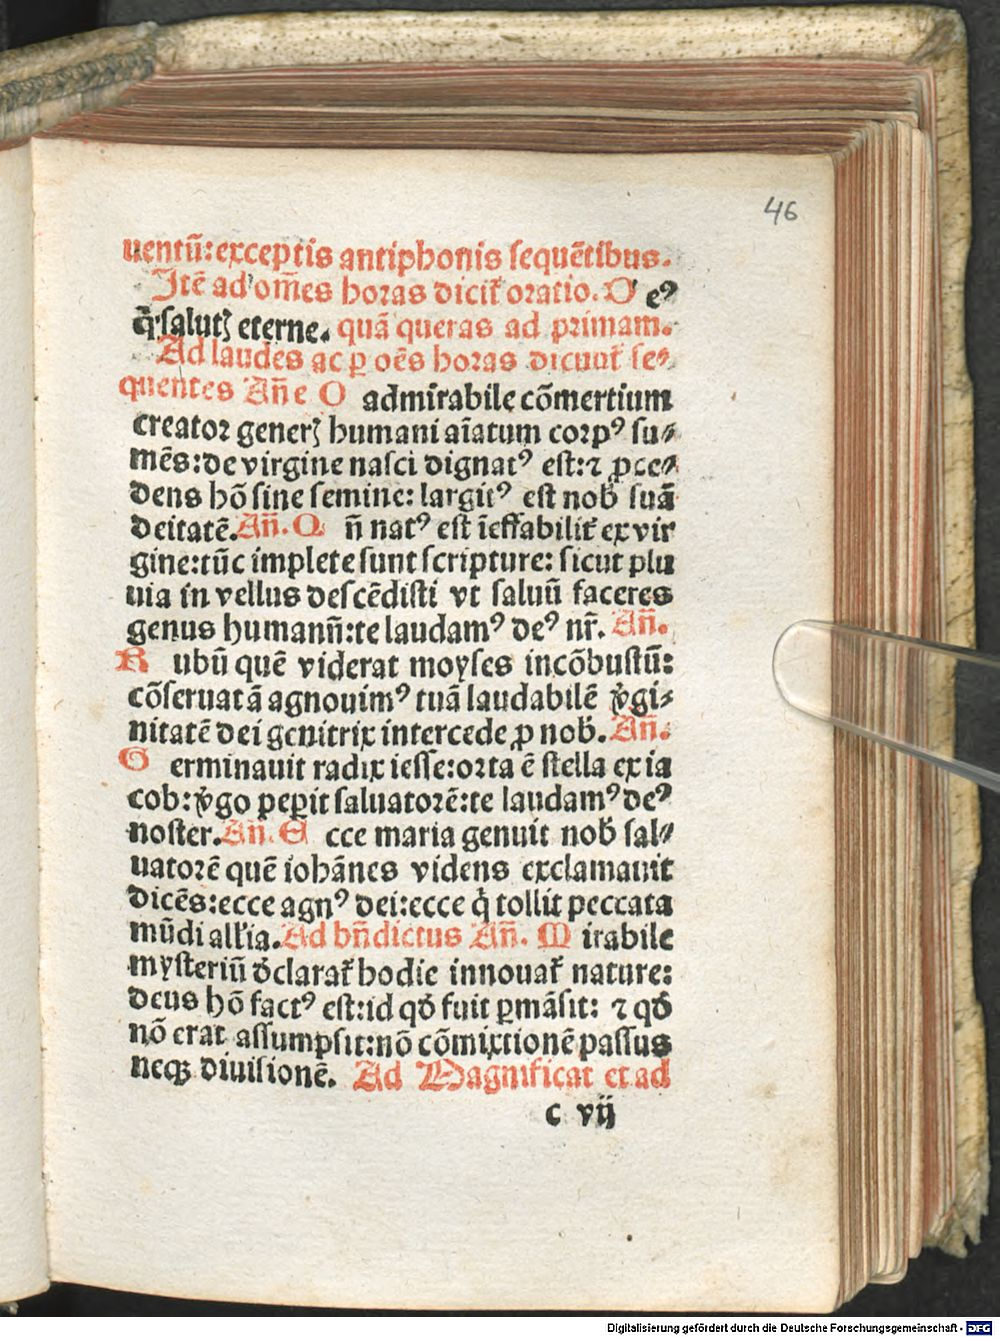 46
uentū:exceptis antiphonis sequētibus.
Itē ad om̄es horas dicit᷑ oratio. D eꝰ
q̄ salutꝭ eterne. quā queras ad primam.
Ad laudes ac ꝑ oēs horas dicunt᷑ se⸗
quentes An̄e O admirabile cōmertium
creator generꝭ humani aīatum corpꝰ su⸗
mēs:de virgine nasci dignatꝰ est:⁊ ꝓce⸗
dens hō sine semine: largitꝰ est nob̄ suā
deitatē. An̄. Q n̄ natꝰ est īeffabilit᷑ ex vir
gine:tūc implete sunt scripture: sicut plu
uia in vellus descēdisti vt saluū faceres
genus humanū:te laudamꝰ deꝰ nr̄. An̄.
R ubū quē viderat moyses incōbustū:
cōseruatā agnouimꝰ tuā laudabilē v̓gi⸗
nitatē dei genitrix intercede ꝓ nob̄. An̄.
G erminauit radix iesse:orta ē stella ex ia
cob:v̓go peꝑit saluatorē:te laudamꝰ deꝰ
noster. An̄. E cce maria genuit nob̄ sal⸗
uatorē quē iohānes videns exclamauit
dicēs:ecce agnꝰ dei:ecce q̇ tollit peccata
mūdi all'ia. Ad bn̄dictus An̄. M irabile
mysteriū d̓clarat᷑ hodie innouat᷑ nature:
deus hō factꝰ est:id qd̓ fuit ꝑmāsit: ⁊ qd̓
nō erat assumpsit:nō cōmixtionē passus
neqꝫ diuisionē. Ad Magnificat et ad
c vij
Digitalisierung gefördert durch die Deutsche Forschungsgemeinschaft - DFG